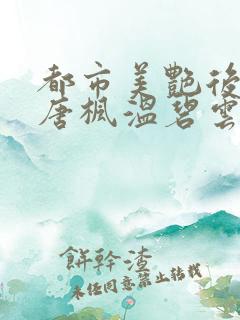 都市美艷後
唐楓溫碧雲
餅幹渣
未经同意禁止转载